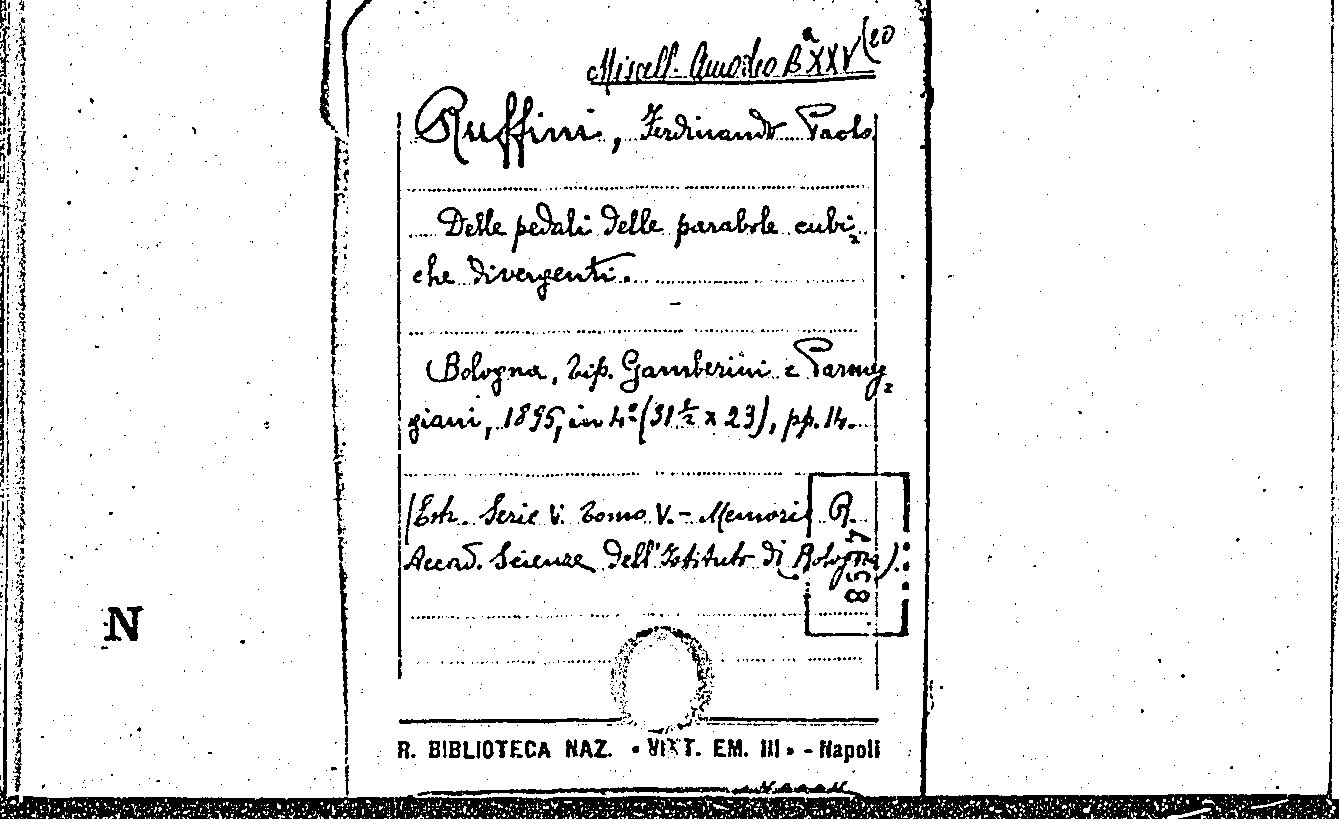 Miscell. Amodeo Bª XXV (20
Ruffini, Ferdinando Paolo
Delle pedali delle parabole cubi=
che divergenti.
Bologna, Tip. Gamberini e Parmeg=
giani, 1895, in 4.º (31 ½ x 23), pp. 14.
(Estr. Serie V. Tomo V. - Memorie R.
Accad. Scienze dell'Istituto di Bologna).
8574
N
R. BIBLIOTECA NAZ. • VITT. EM. III • - Napoli